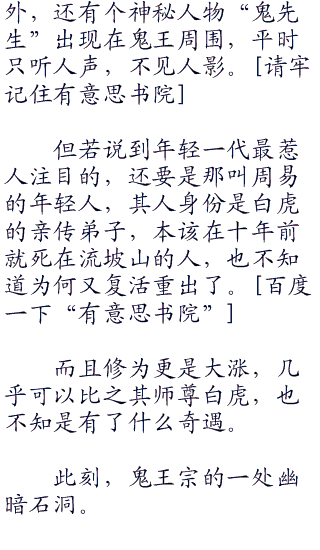 外，还有个神秘人物“鬼先
生”出现在鬼王周围，平时
只听人声，不见人影。[请牢
记住有意思书院]
但若说到年轻一代最惹
人注目的，还要是那叫周易
的年轻人，其人身份是白虎
的亲传弟子，本该在十年前
就死在流坡山的人，也不知
道为何又复活重出了。[百度
一下“有意思书院”]
而且修为更是大涨，几
乎可以比之其师尊白虎，也
不知是有了什么奇遇。
此刻，鬼王宗的一处幽
暗石洞。